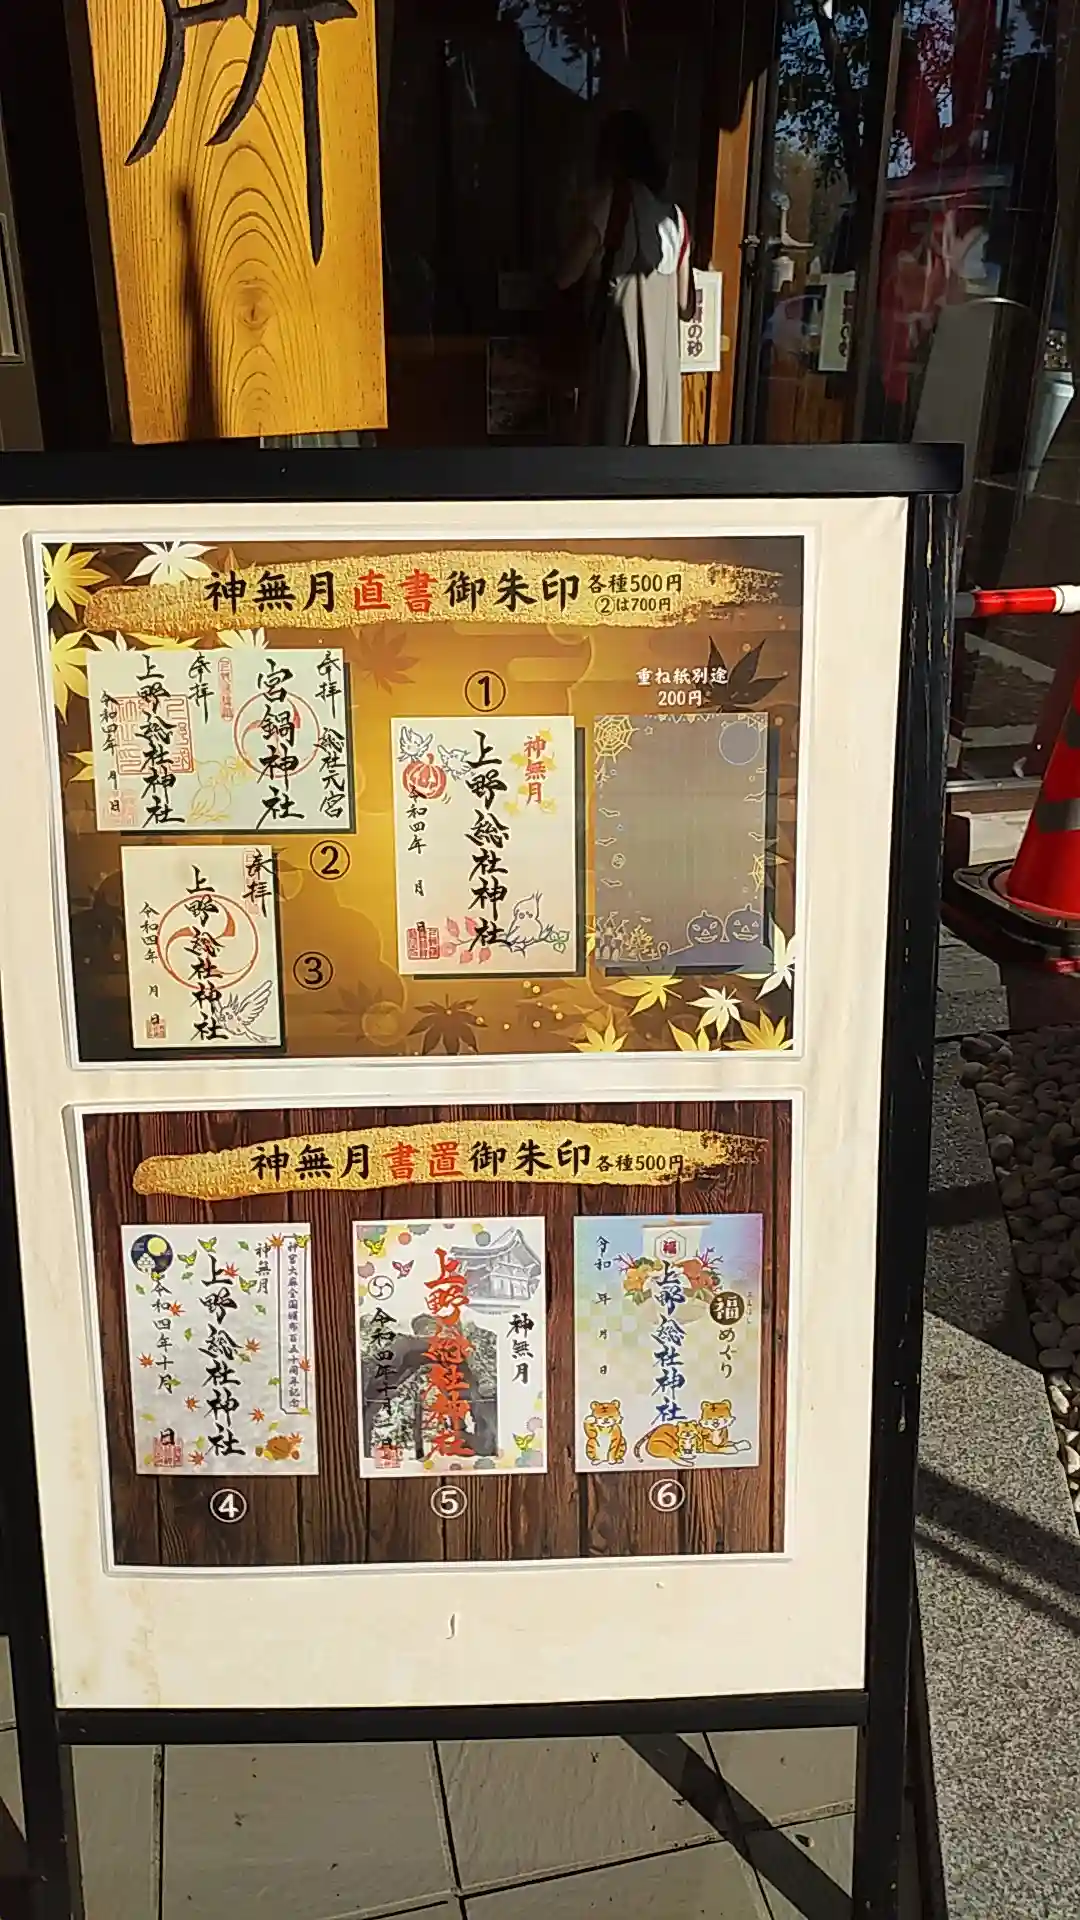 所
神無月直書御朱印 各種500円
②は700円
奉拝
総社元宮
宮鍋神社
奉拝
上野総社神社
令和四年 月 日
②
①
神無月
上野総社神社
令和四年 月 日
重ね紙別途
200円
奉拝
上野総社神社
令和四年 月 日
③
神無月書置御朱印 各種500円
神宮大麻全国頒布百五十周年記念
神無月
上野総社神社
令和四年十月 日
④
神無月
上野総社神社
令和四年十月 日
⑤
福
福めぐり
上野総社神社
令和 年 月 日
⑥
の砂